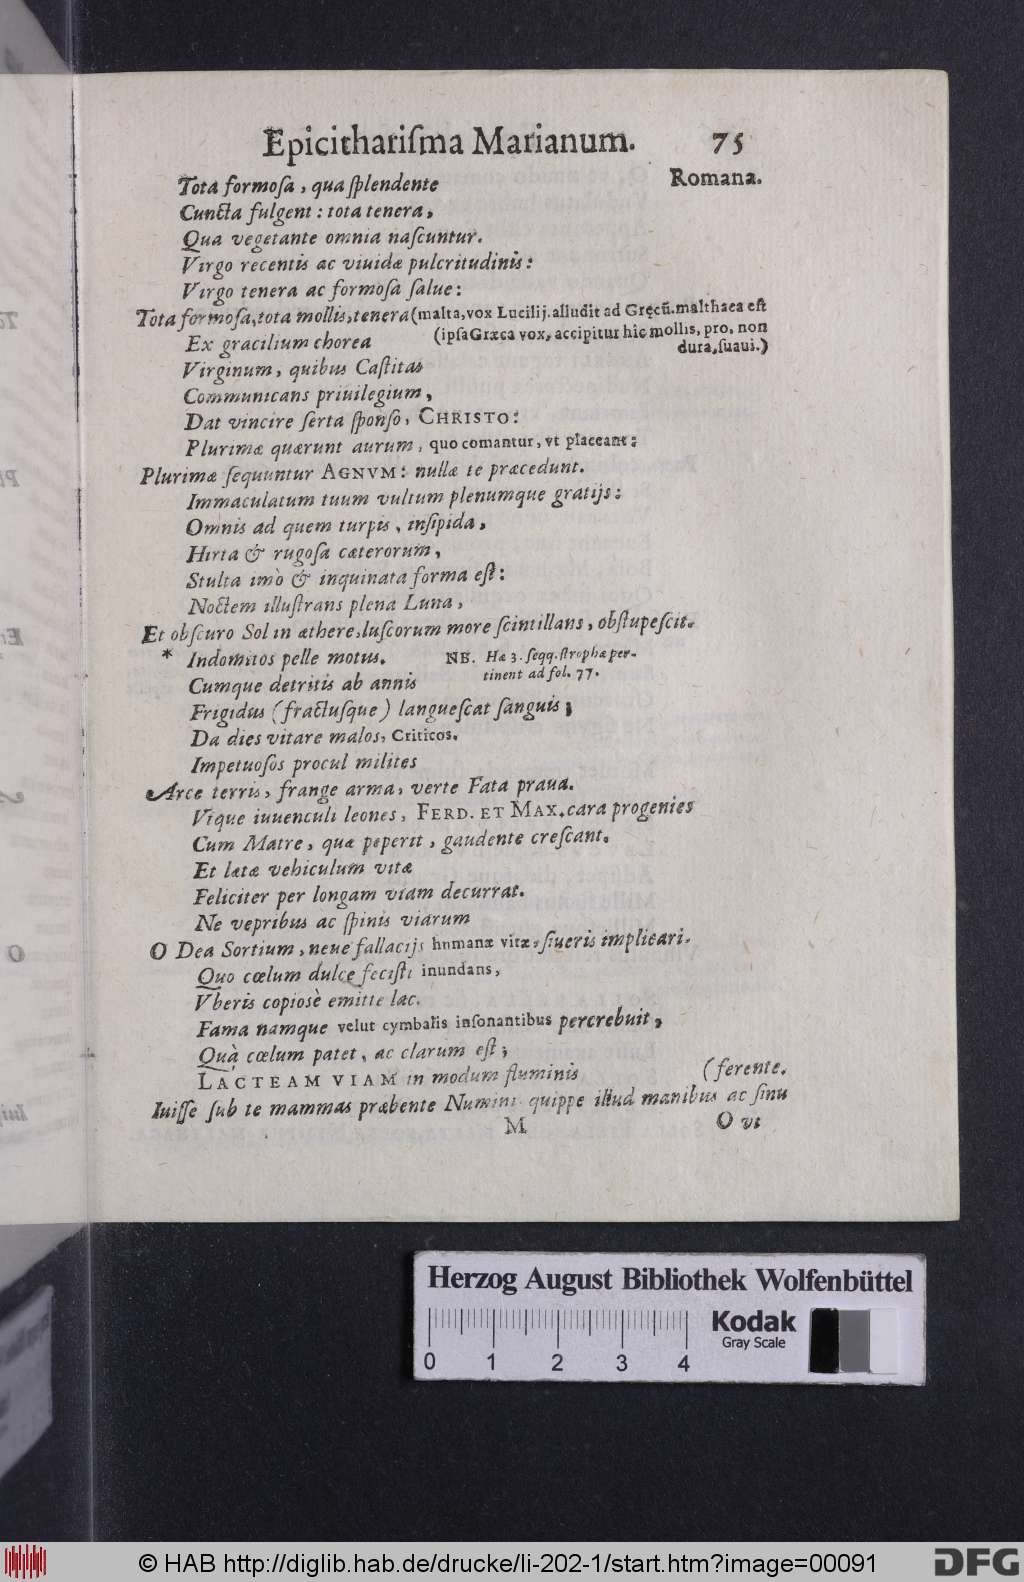 Epicithariſma Marianum. 75
Romana.
Tota formoſa, qua ſplendente
Cuncta fulgent: tota tenera,
Qua vegetante omnia naſcuntur.
Virgo recentis ac viuidæ pulcritudinis:
Virgo tenera ac formoſa ſalue:
Tota formoſa, tota mollis, tenera (malta, vox Lucilij. alludit ad Gręcũ. malthaea eſt
Ex gracilium chorea (ipſa Græca vox, accipitur hic mollis, pro, non
dura, ſuaui.)
Virginum, quibus Caſtitas
Communicans priuilegium,
Dat vincire ſerta ſponſo, CHRISTO:
Plurimæ quærunt aurum, quo comantur, vt placeant:
Plurimæ ſequuntur AGNVM: nullæ te præcedunt.
Immaculatum tuum vultum plenumque gratijs:
Omnis ad quem turpis, inſipida,
Hirta & rugoſa cæterorum,
Stulta imò & inquinata forma eſt:
Noctem illuſtrans plena Luna,
Et obſcuro Sol in æthere, luſcorum more ſcintillans, obſtupeſcit.
* Indomitos pelle motus. NB. Hæ 3. ſeqq. ſtrophæ per-
tinent ad fol. 77.
Cumque detritis ab annis
Frigidus (fractuſque) langueſcat ſanguis;
Da dies vitare malos, Criticos.
Impetuoſos procul milites
Arce terris, frange arma, verte Fata praua.
Vique iuuenculi leones, FERD. ET MAX. cara progenies
Cum Matre, quæ peperit, gaudente creſcant.
Et lætæ vehiculum vitæ
Feliciter per longam viam decurrat.
Ne vepribus ac ſpinis viarum
O Dea Sortium, neue fallacijs humanæ vitæ, ſiueris implicari.
Quo cœlum dulce feciſti inundans,
Vberis copiosè emitte lac.
Fama namque velut cymbalis inſonantibus percrebuit,
Quà cœlum patet, ac clarum eſt;
LACTEAM VIAM in modum fluminis (ferente.
Iuiſſe ſub te mammas præbente Numini quippe illud manibus ac ſinu
M O vt
Herzog August Bibliothek Wolfenbüttel
0 1 2 3 4
Kodak
Gray Scale
© HAB http://diglib.hab.de/drucke/li-202-1/start.htm?image=00091
DFG